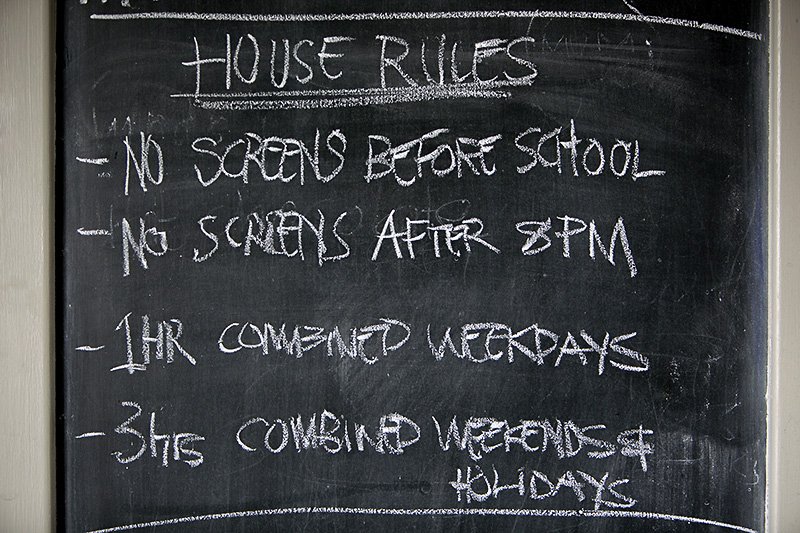 HOUSE RULES
- NO SCREENS BEFORE SCHOOL
- NO SCREENS AFTER 8PM
- 1HR COMBINED WEEKDAYS
- 3hrs COMBINED WEEKENDS &
HOLIDAYS